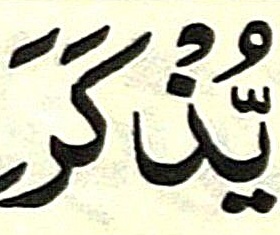 يُّذْكَرَ